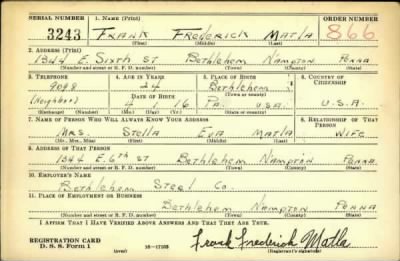 SERIAL NUMBER 1. NAME (Print) ORDER NUMBER
3243 FRANK FREDERICK MATLA 866
(First) (Middle) (Last)
2. ADDRESS (Print)
1344 E. SIXTH ST BETHLEHEM NAMPTON PENNA
(Number and street or R. F. D. number) (Town) (County) (State)
3. TELEPHONE 4. AGE IN YEARS 5. PLACE OF BIRTH 6. COUNTRY OF CITIZENSHIP
9098 24 BETHLEHEM
DATE OF BIRTH (Town or county)
(Neighbor) 4 16 PA. U.S.A. U.S.A.
(Exchange) (Number) (Mo.) (Day) (Yr.) (State or country)
7. NAME OF PERSON WHO WILL ALWAYS KNOW YOUR ADDRESS 8. RELATIONSHIP OF THAT PERSON
MRS. STELLA EVA MATLA WIFE
(Mr., Mrs., Miss) (First) (Middle) (Last)
9. ADDRESS OF THAT PERSON
1344 E. 6TH ST BETHLEHEM NAMPTON PENNA.
(Number and street or R. F. D. number) (Town) (County) (State)
10. EMPLOYER'S NAME
BETHLEHEM STEEL CO.
11. PLACE OF EMPLOYMENT OR BUSINESS
BETHLEHEM NAMPTON PENNA
(Number and street or R. F. D. number) (Town) (County) (State)
I AFFIRM THAT I HAVE VERIFIED ABOVE ANSWERS AND THAT THEY ARE TRUE.
REGISTRATION CARD
D. S. S. Form 1 (over) 16—17105 Frank Frederick Matla
(Registrant's signature)